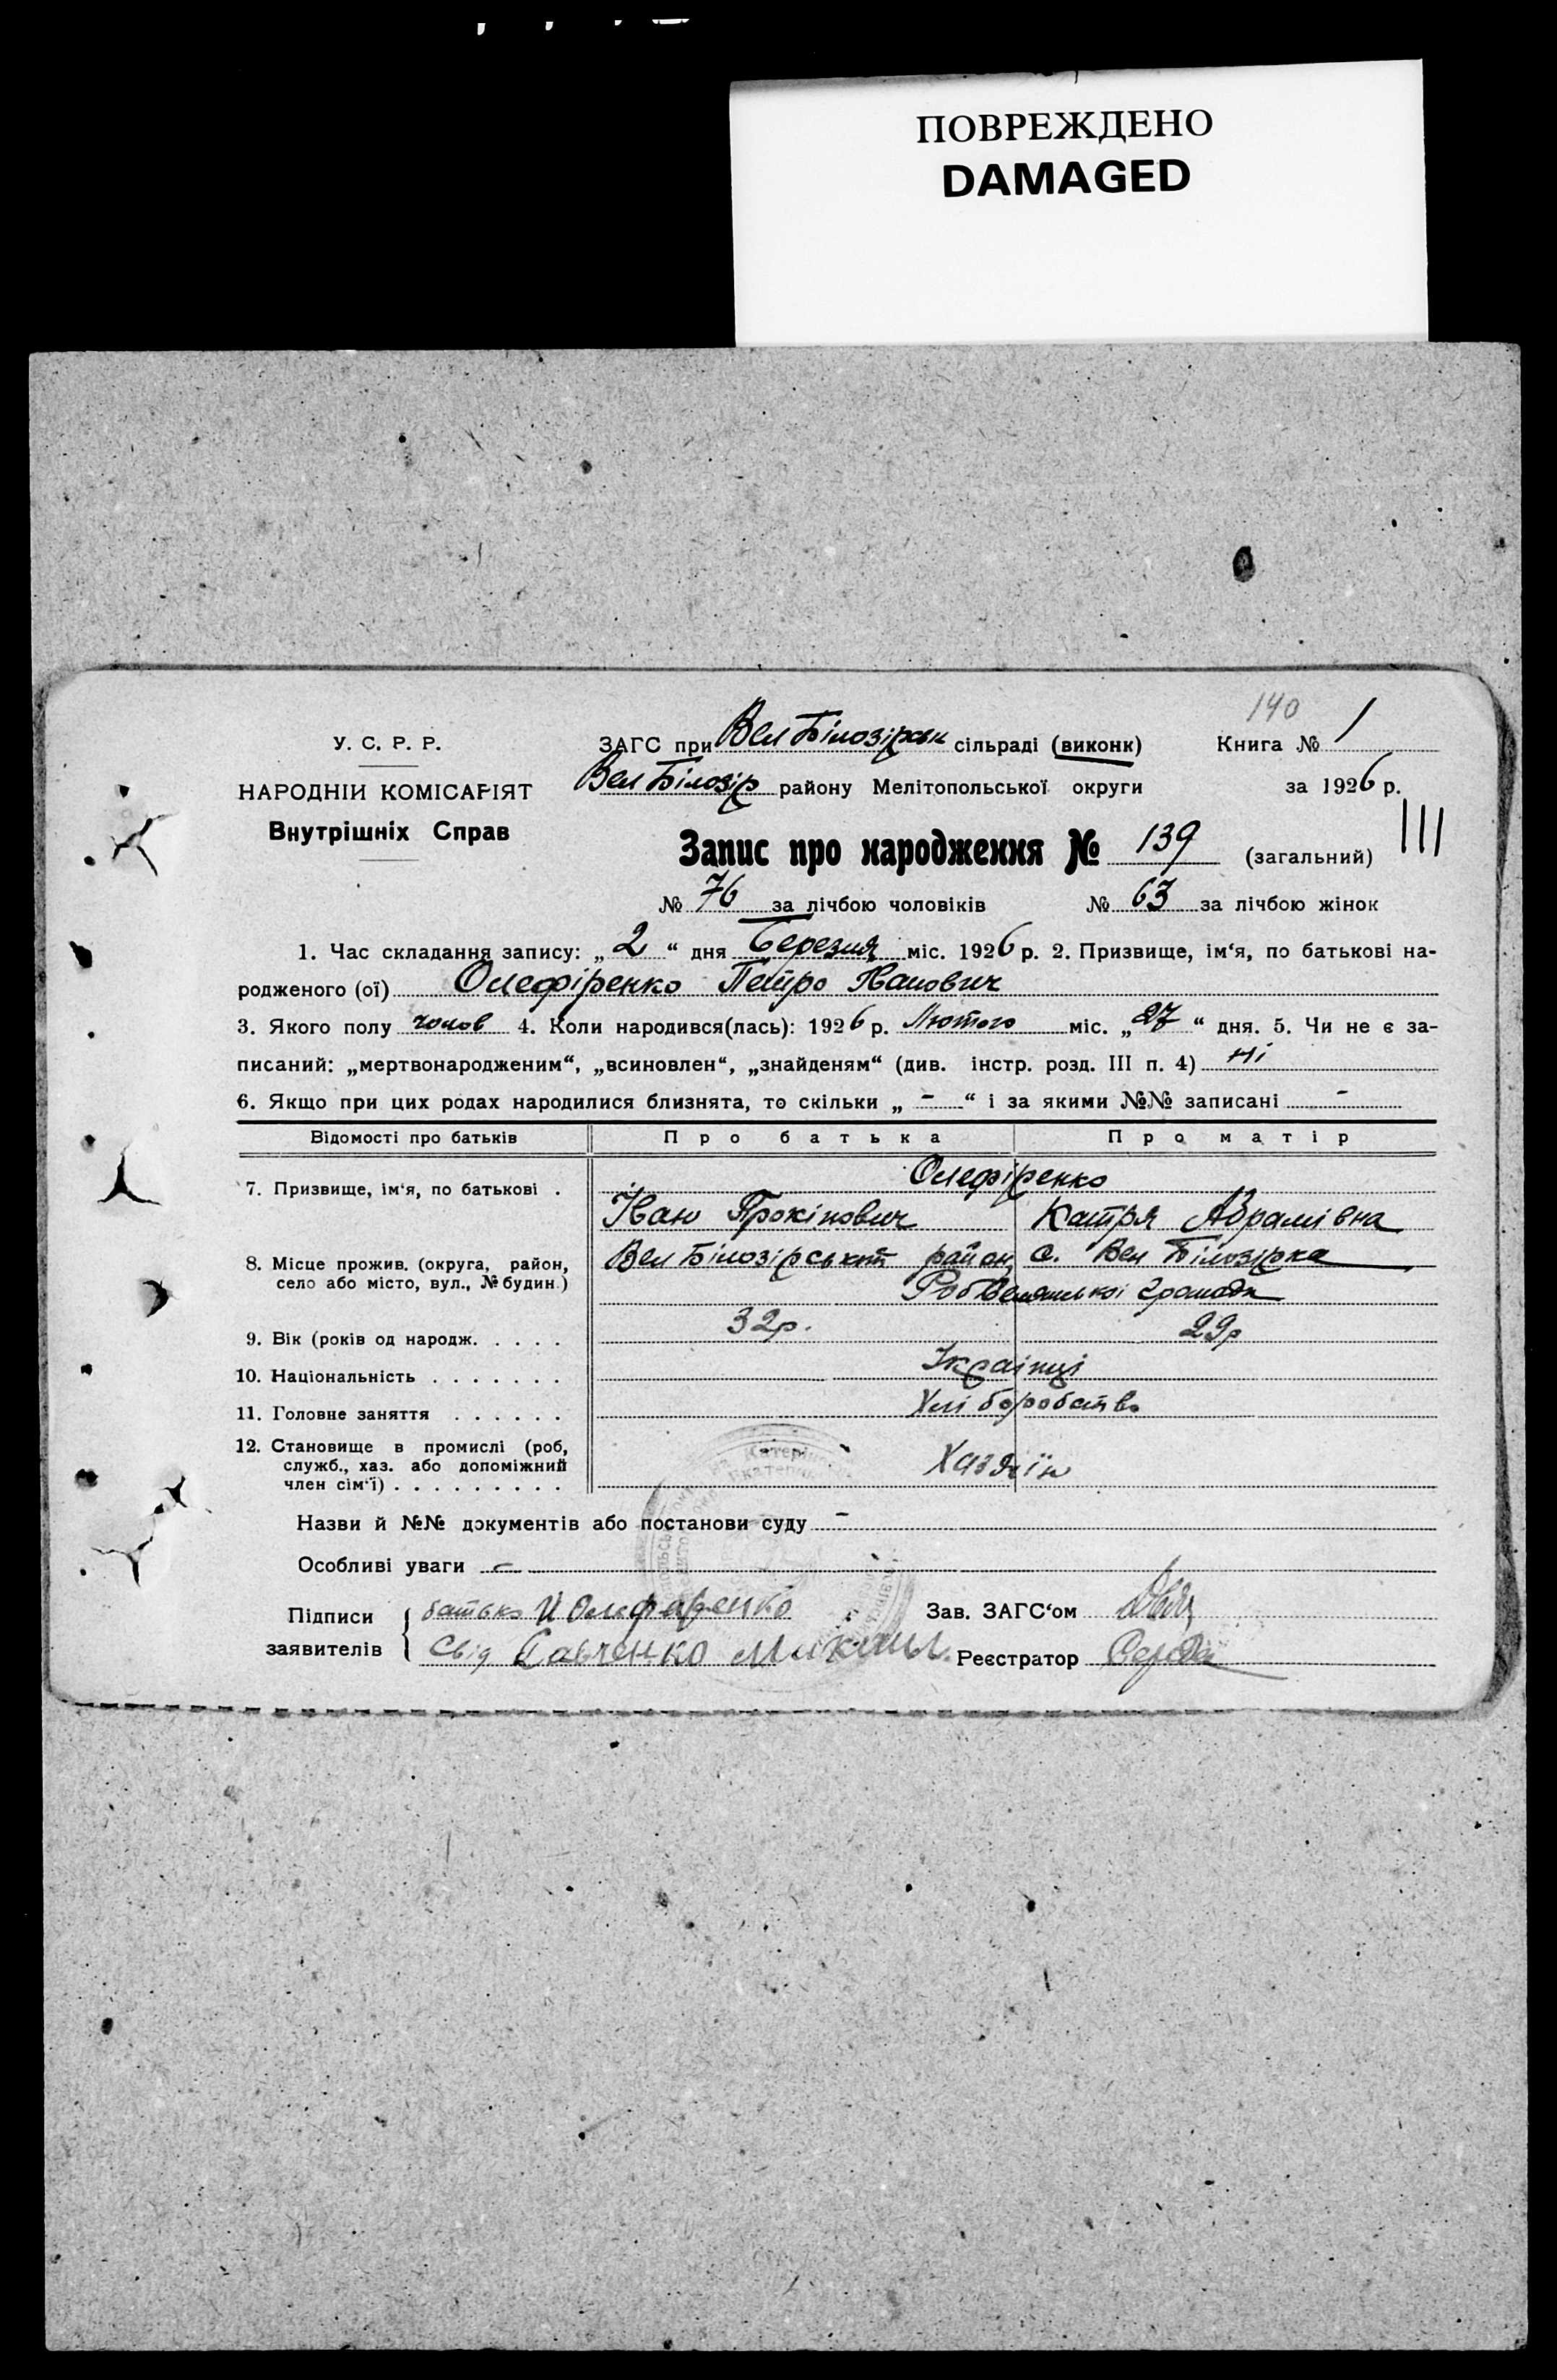 ПОВРЕЖДЕНО
DAMAGED
140
У. С. Р. Р.
ЗАГС при Вел Білозірськ сільраді (виконк)
Книга № 1
НАРОДНІЙ КОМІСАРІЯТ
Вел Білозір району Мелітопольської округи
за 1926 р.
Внутрішніх Справ
Запис про народження № 139 (загальний)
№ 76 за лічбою чоловіків № 63 за лічбою жінок
1. Час складання запису: „ 2 “ дня Березня міс. 1926 р. 2. Призвище, ім‘я, по батькові на-
родженого (ої) Олефіренко Петро Іванович
3. Якого полу чолов 4. Коли народився(лась): 1926 р. Лютого міс. „ 27 “ дня. 5. Чи не є за-
писаний: „мертвонародженим“, „всиновлен“, „знайденям“ (див. інстр. розд. III п. 4) ні
6. Якщо при цих родах народилися близнята, то скільки „ - “ і за якими №№ записані -
Відомості про батьків Про батька Про матір
Олефіренко
7. Призвище, ім‘я, по батькові .
Іван Прокіпович Катря Абрамівна
8. Місце прожив. (округа, район,
село або місто, вул., № будин.)
Вел Білозірськот район, с. Вел Білозірка
громади
9. Вік (років од народж. . . . . 32р. 29р
10. Національність . . . . . . . Українці
11. Головне заняття . . . . . . Хліборобство
12. Становище в промислі (роб,
служб., хаз. або допоміжний
член сім‘ї) . . . . . . . . . Хазяїн
Назви й №№ документів або постанови суду -
Особливі уваги -
Підписи
заявителів
батько И Олефаренко
Зав. ЗАГС‘ом
Свід Савченко Михаил.
Реєстратор Середа